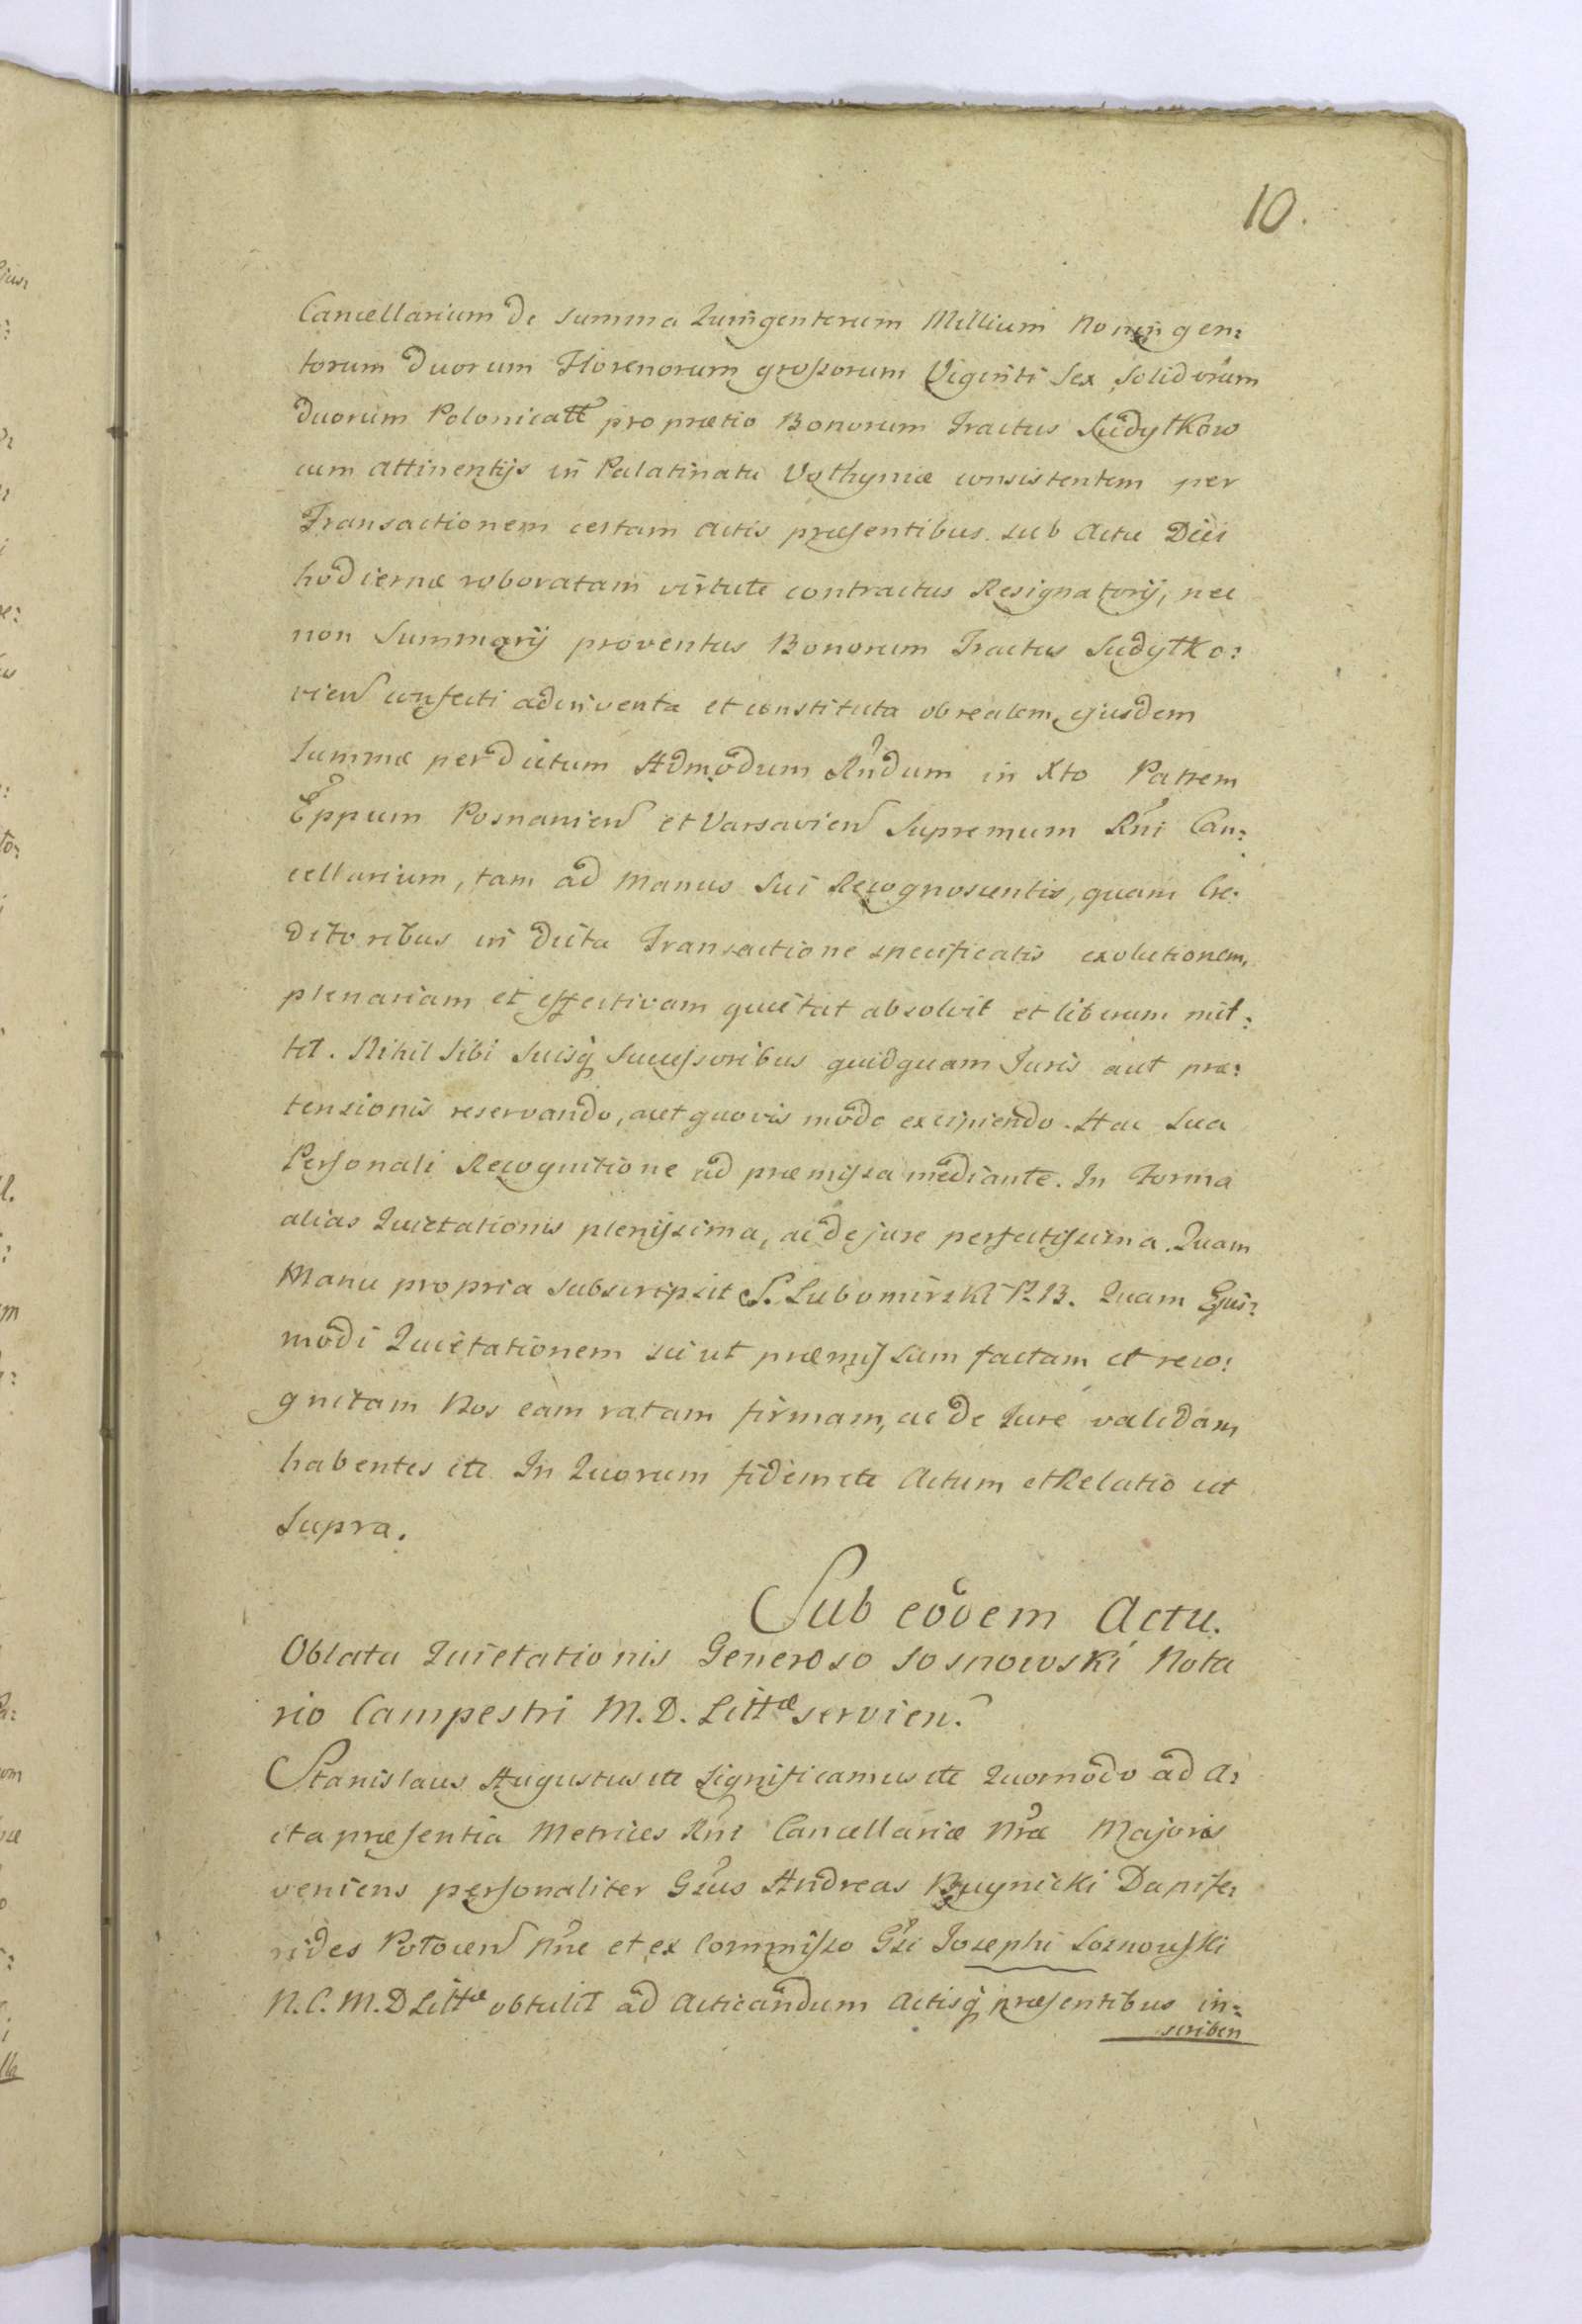 10.
Cancellarium de summa Quingentorum Millium Noningen:
torum duorum Florenorum grossorum Viginti Sex Solidorum
duorum Polonicall pro prætio Bonorum Tractus Sudyłkow
cum attinentijs in Palatinatu Volhyniæ consistentem per
Transactionem certam Actis præsentibus sub Actu Diei
hodiernæ roboratam virtute contractus Resignatorij, nec
non Summarij proventus Bonorum Tractus Sudyłko:
vien confecti adinventa et constituta ob realem ejusdem
Summæ per dictum Admodum Rndum in Xto Patrem
Eppum Posnanien et Varsavien Supremum Rni Can:
cellarium, tam ad Manus Sui Recognoscentis, quam Cre:
ditoribus in dicta Transactione specificatis exolutionem,
plenariam et effectivam quietat absolvit et liberum mit:
tit. Nihil Sibi Suisq Successoribus quidquam Juris aut præ:
tensionis reservando, aut quovis modo excipiendo. Hac Sua
Personali Recognitione ad præmissa mediante. In Forma
alias Quietationis plenissima, ac de jure perfectissima. Quam
Manu propria subscripsit S. Lubomirski P.B. Quam Ejus:
modi Quietationem sicut præmissum factam et reco:
gnitam Nos eam ratam firmam, ac de Jure validam
habentes etc In Quorum fidem etc Actum et Relatio ut
Supra.
Sub eodem Actu.
Oblata Quietationis Generoso Sosnowski Nota
rio Campestri M. D. Littæ servien.
Stanislaus Augustus etc Significamus etc Quomodo ad A:
cta præsentia Metrices Rni Cancellariæ Nræ Majoris
veniens personaliter Gsus Andreas Buynicki Dapife:
rides Potocen Nne et ex Commisso Gsi Josephi Sosnowski
N. C. M. D Littæ obtulit ad Acticandum Actisq præsentibus in:
scriben